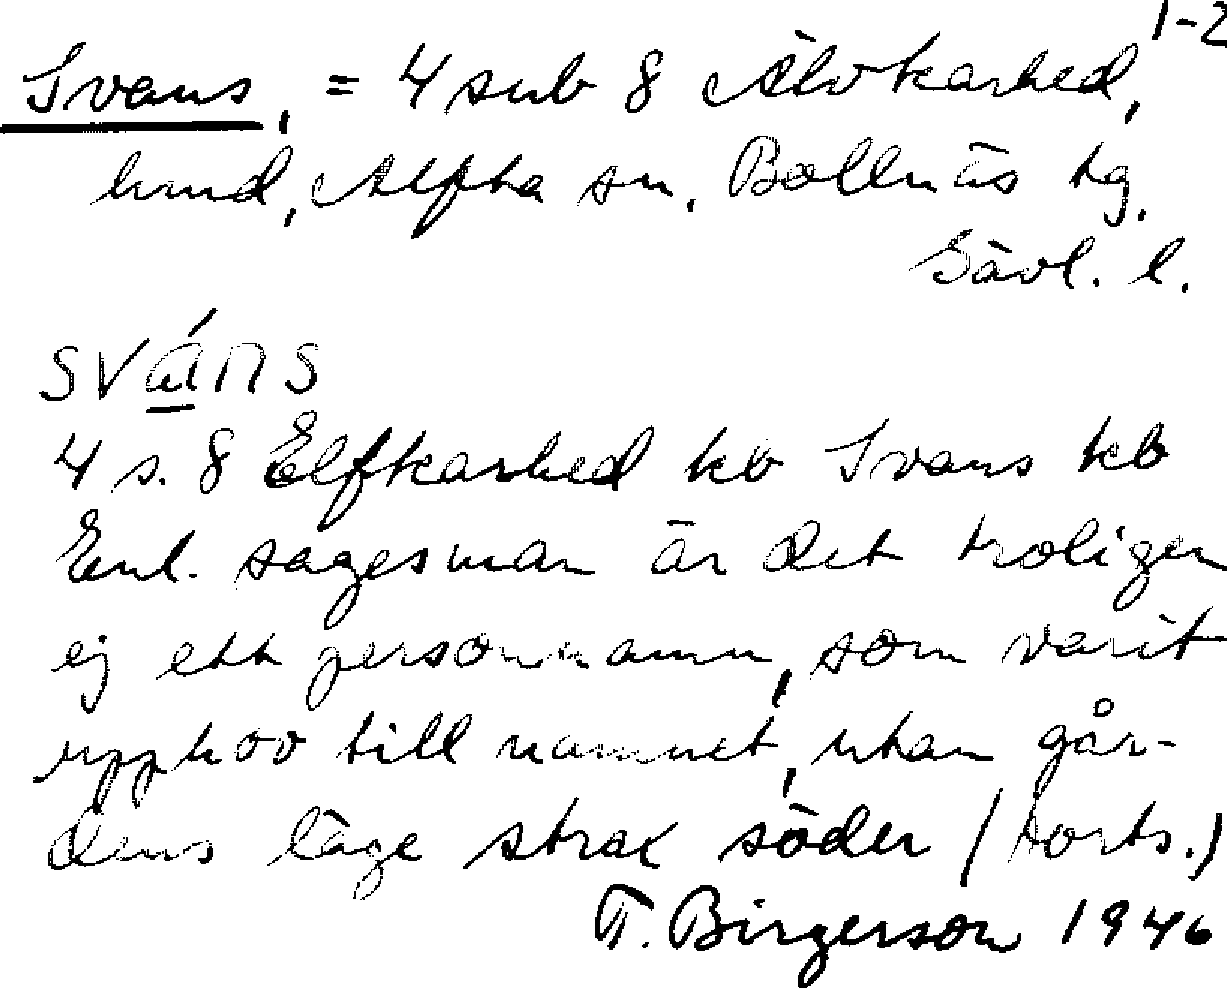 1-2
Svans, = 4 sub 8 Älvkarhed,
hmd, Alfta sn, Bollnäs tg.
Gävl. l.
sváns
4 s. 8 Elfkarhed kb Svans kb
Enl. sagesman är det troligen
ej ett personnamn, som varit
upphov till namnet, utan går-
dens läge strax söder (forts.)
T. Birgerson 1946